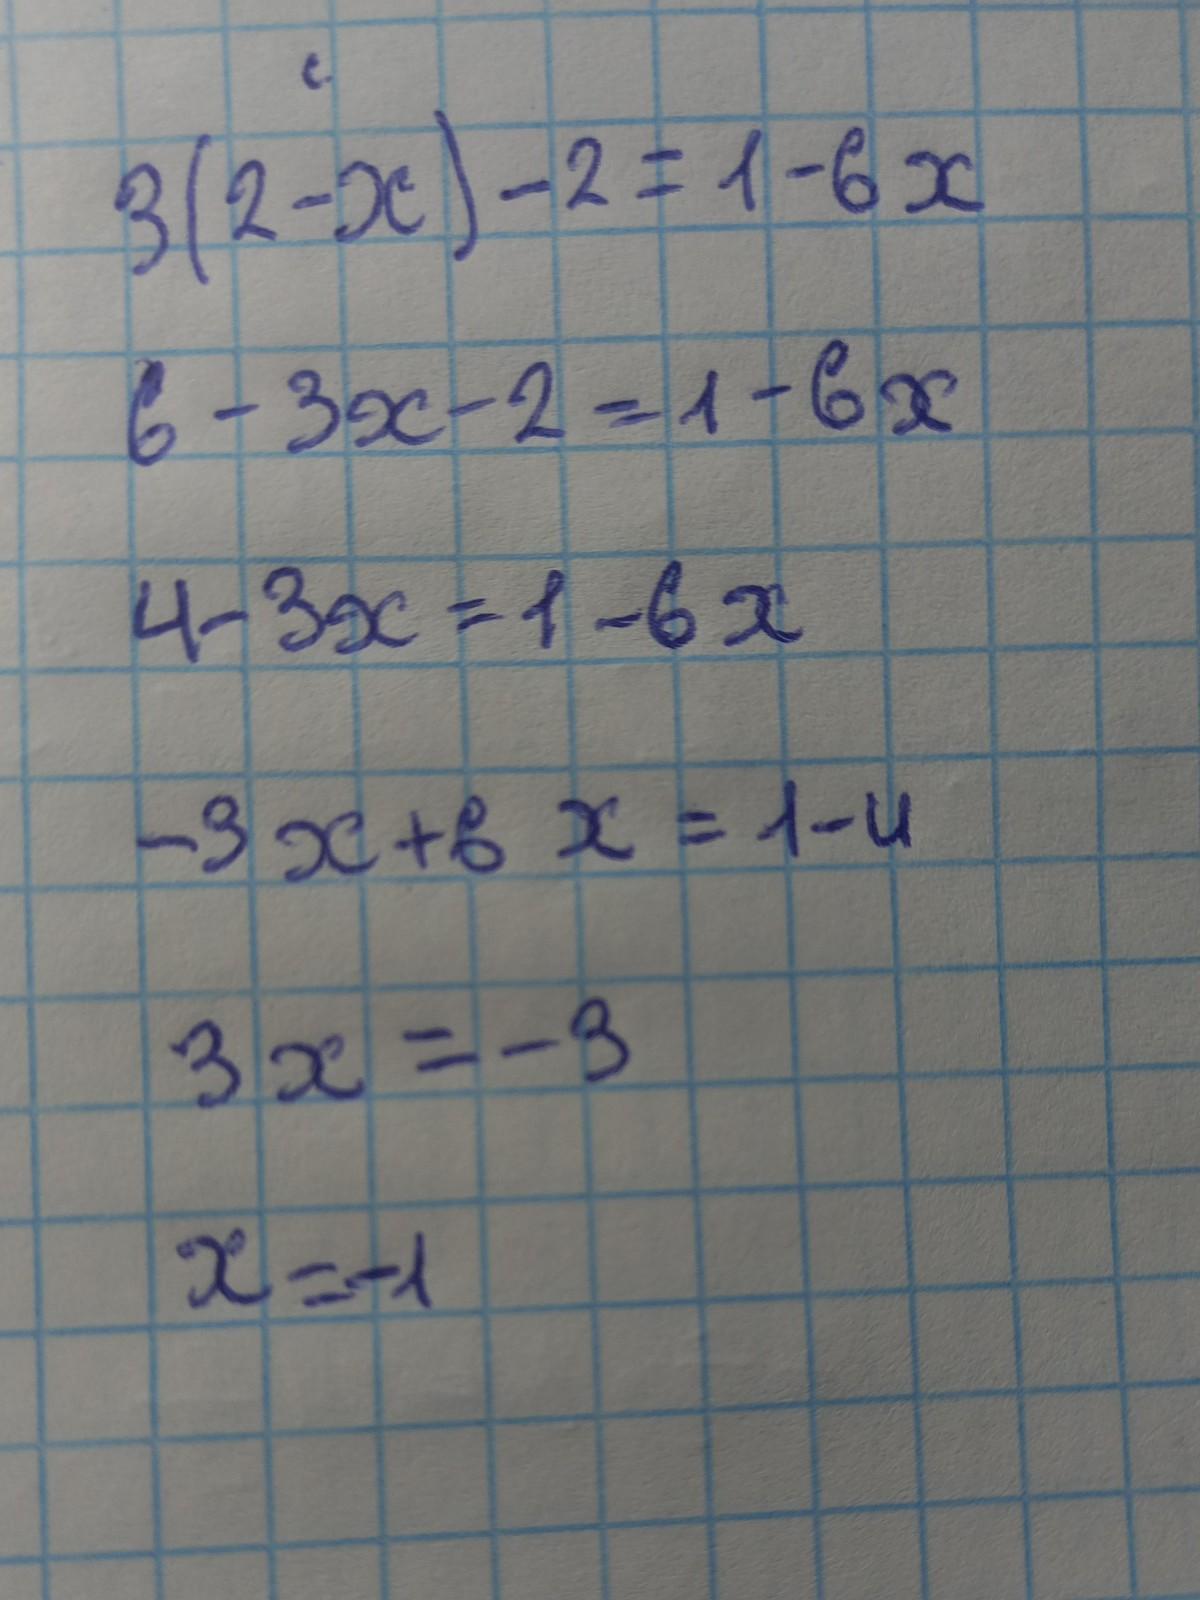 3(2-x)-2=1-6x
6-3x-2=1-6x
4-3x=1-6x
-3x+6x=1-4
3x=-3
x=-1